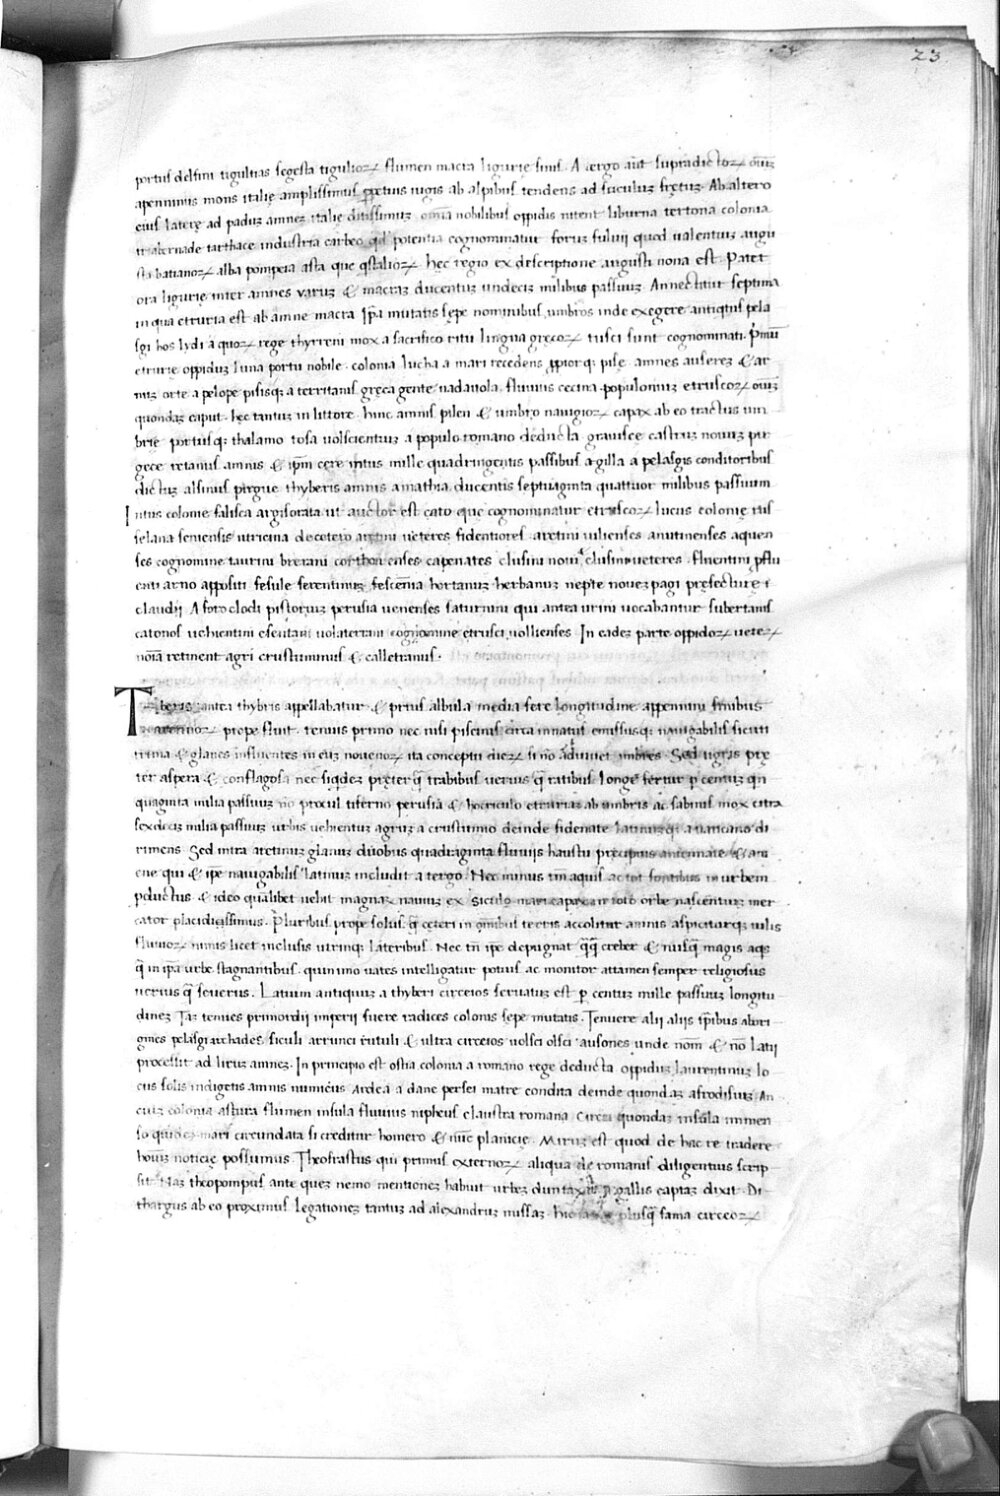 23
portus delfini tigullias segesta tigulioꝝ flumen macra ligurię finis. A tergo aūt supradictoꝝ oīuꝫ
apenninus mons italię amplissimus ꝑpetuis iugis ab alpibus tendens ad siculuꝫ fretuꝫ. Ab altero
eius laterę ad paduꝫ amneꝫ italię ditissimuꝫ omīa nobilibus oppidis nitent liburna tertona colonia
iria bernade tarthace industria carbeo qđ potentia cognominatur forus fulvii quod ualentiuꝫ augu
sta batianoꝝ alba pompeia asta que qstalioꝝ hęc regio ex descriptione augusti nona est. Patet
ora ligurię inter amnes varuꝫ & macraꝫ ducentuꝫ undeciꝫ milibus passuuꝫ. Annectitur septima
in qua etruria est ab amne macra ip̄a mutatis sępe nominibus umbros inde exegere antiqtus pela
sgi hos lydi a quoꝝ rege thyrreni mox a sacrifico ritu lingua gręcoꝝ tusci sunt cognominati. Primū
etrurię oppiduꝫ luna portu nobile. colonia lucha a mari recedens ꝓpiorq; pisę amnes auserez & ar
nuꝫ orte a pelope pisisq; a territanis gręca gente uada uola. fluuius cecina populoniuꝫ etruscoꝝ oīuꝫ
quondaꝫ caput. hęc tantuꝫ in littore. hinc amnis pilen & umbro nauigioꝝ capax ab eo tractus um
brię portusq; thalamo cosa uolscientiuꝫ a populo romano deducta grauisce castruꝫ nouuꝫ pir
gece retanus amnis & ipm cęre intus mille quadringentis passibus agilla a pelasgis conditoribus
dictuꝫ alsinus pirgue thyberis amnis a mathia ducentis septuaginta quattuor milibus passuum
Intus colonie falisca argis orata ut auctor est cato que cognominatur etruscoꝝ lucus colonię rus
selana seniensis utricina de cetero aretini ueteres fidentiores aretini iulienses amitinenses aquen
ses cognomine taurini blerani corthonenses capenates clusini noui clusini ueteres. fluentini ꝓflu
enti arno appositi fesule ferentinuꝫ fescenīa hortanuꝫ herbanuꝫ nepte noueꝫ pagi pręfecturę
claudii A foro clodi pistoriuꝫ perusia uenenses saturnini qui antea urini uocabantur subertani
catonos uehientini esentani uolaterrani cognomine etrusci uollienses. In eadeꝫ parte oppidoꝝ ueteꝝ
noīa retinent agri crustuminus & calletranus.
Tiberis antea thybris appellabatur & prius albula media fere longitudine appennini finibus
prope fluit. tenuis primo nec nisi piscinis circa innatus emissusq; nauigabilis sicuti
tinia & glanes influentes in euꝫ nouenoꝝ ita conceptu dieꝝ si nō adiuuet imbres. Sed tigris pre
ter aspera & conflagosa nec siqdeꝫ pręter q̄ trabibus uerius q̄ ratibus longe fertur ꝑ centuꝫ qn
quaginta milia passuuꝫ nō procul tiferno perusia & hocriculo etruriaꝫ ab umbris ac sabinis mox citra
sexdeciꝫ milia passuuꝫ urbis uehientuꝫ agruꝫ a crustumio deinde fidenate latinuꝫq; a uaticano di
rimens. Sed intra aretinuꝫ glanuꝫ duobus quadraginta fluuijs haustu precipuis antennate & ani
ene qui & ipe nauigabilis latiuꝫ includit a tergo. Nec minus tm̄ aquis ac tot fontibus in urbem
ꝑductus. & ideo qualibet uehit magnaꝫ nauiuꝫ ex siculo mari capax in toto orbe nascentiuꝫ mer
cator placidissimus. Pluribus prope solus q̄ cęteri in omībus terris accolitur amnis aspiciturq; uilis
fluuioꝝ nimis licet inclusis utrinq; lateribus. Nec tn̄ ipe depugnat qq̄ creber & nusq̄ magis aqs
q̄ in ip̄a urbe stagnantibus. quin imo uates intelligatur potius ac monitor attamen semper religiosus
uerius q̄ seuerus. Latium antiquuꝫ a thyberi circeios seruatuꝫ est ꝑ centuꝫ mille passuuꝫ longitu
dineꝫ Taꝫ tenues primordii imperii fuere radices colonis sepe mutatis. Tenuere alii aliis tp̄ibus abori
gines pelasgi archades siculi arrunci rutuli & ultra circeios uolsci olsci ausones unde nōm & nō latii
processit ad liruꝫ amneꝫ. In principio est ostia colonia a romano rege deducta oppiduꝫ laurentinuꝫ lo
cus solis indigetis amnis numicus Ardea a dane persei matre condita deinde quondaꝫ afrodisiuꝫ An
ciuꝫ colonia astura flumen insula fluuius nipheus claustra romana circei quondaꝫ insula immen
so quideꝫ mari circundata si creditur homero & nūc planicię. Miruꝫ est quod de hac re tradere
hoīuꝫ noticię possumus. Theofrastus qui primus externoꝝ aliqua de romanis diligentius scrip
sit. Naꝫ theopompus ante queꝫ nemo mentioneꝫ habuit urbeꝫ duntaxat a gallis captaꝫ dixit. Di
thargus ab eo proximus legationeꝫ tantuꝫ ad alexandruꝫ missaꝫ. hic plusq̄ fama circeoꝝ